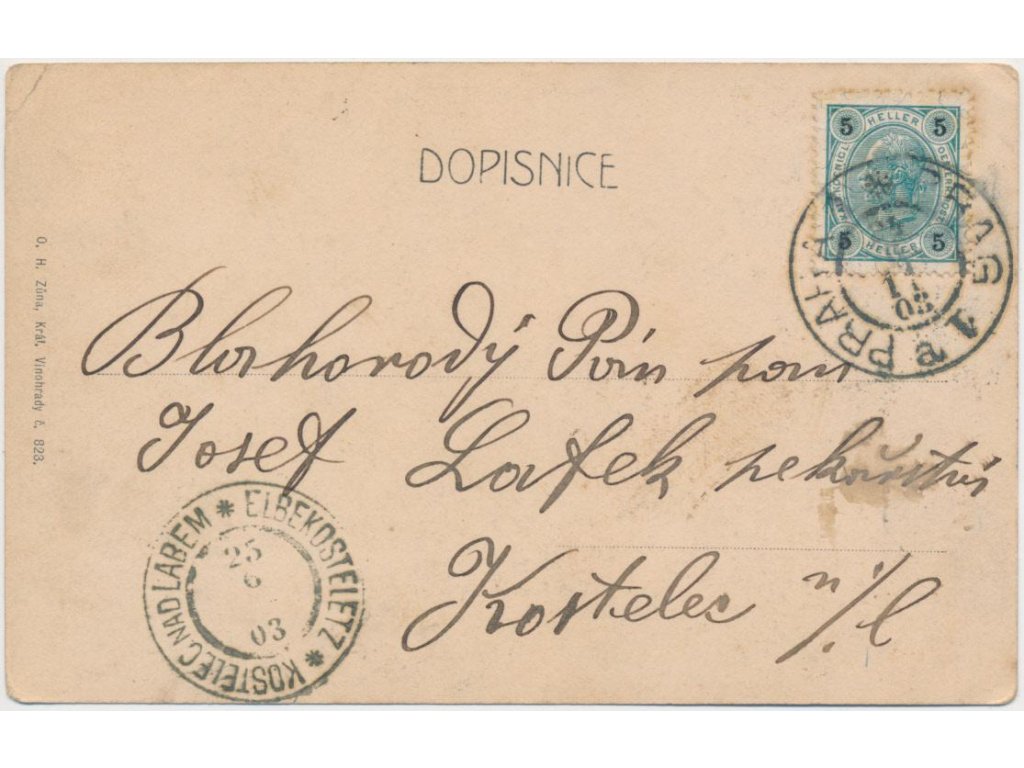 DOPISNICE
5 HELLER 5
5 HELLER 5
PRAHA PRAG
03
O. H. Zůna, Král. Vinohrady č. 823.
Blahorodý Pán pan
Josef Lafek pekařství
Kostelec n/L
KOSTELEC NAD LABEM * ELBEKOSTELETZ *
25
6
03